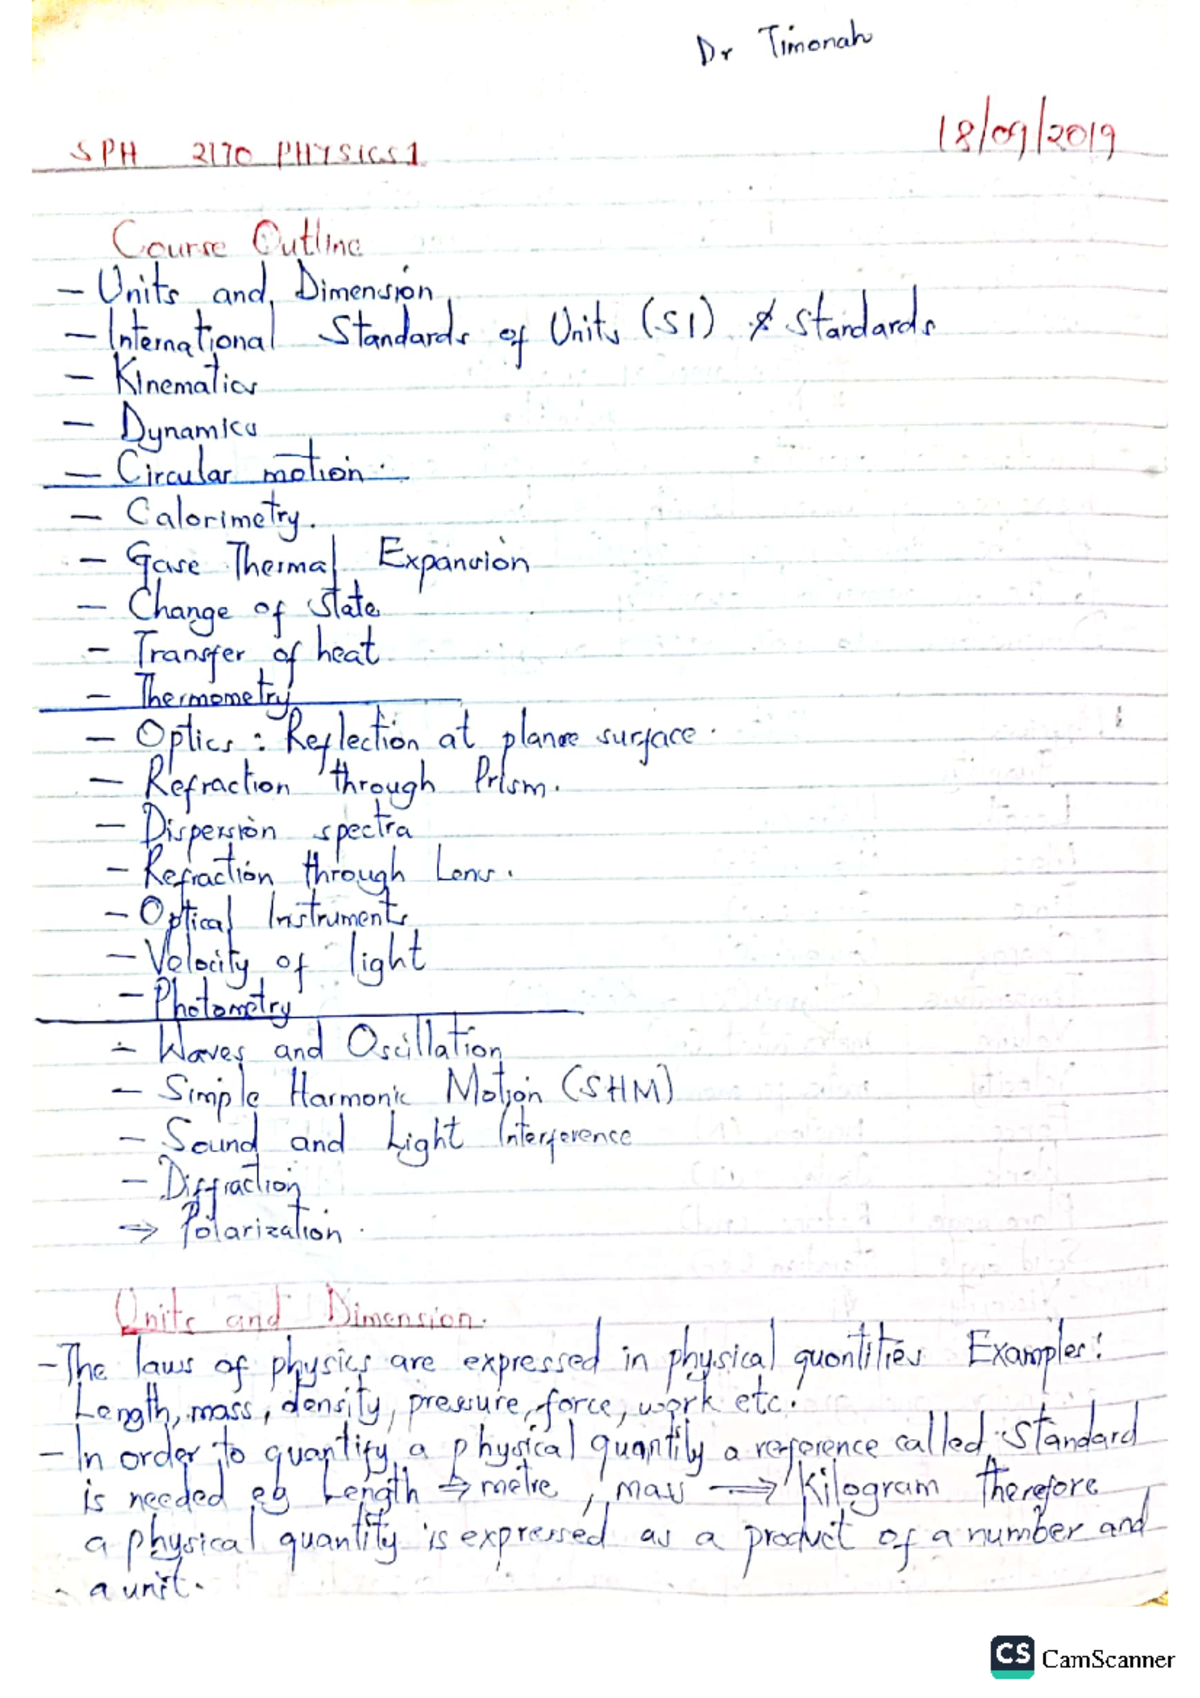 Dr Timonah
18/09/2019
SPH 2170 PHYSICS 1
Course Outline
- Units and Dimension
- International Standards of Units (SI) & standards
- Kinematics
- Dynamics
- Circular motion.
- Calorimetry.
- Gase Thermal Expansion
- Change of state
- Transfer of heat
- Thermometry
- Optics : Reflection at plane surface.
- Refraction through Prism.
- Dispersion spectra
- Refraction through Lens.
- Optical Instruments
- Velocity of light
- Photometry
- Waves and Oscillation
- Simple Harmonic Motion (SHM)
- Sound and Light Interference
- Diffraction
→ Polarization.
Units and Dimension.
- The laws of physics are expressed in physical quantities Examples:
Length, mass, density, pressure, force, work etc.
- In order to quantify a physical quantity a reference called standard
is needed eg Length → metre, mass → Kilogram therefore
a physical quantity is expressed as a product of a number and
a unit.
CS CamScanner